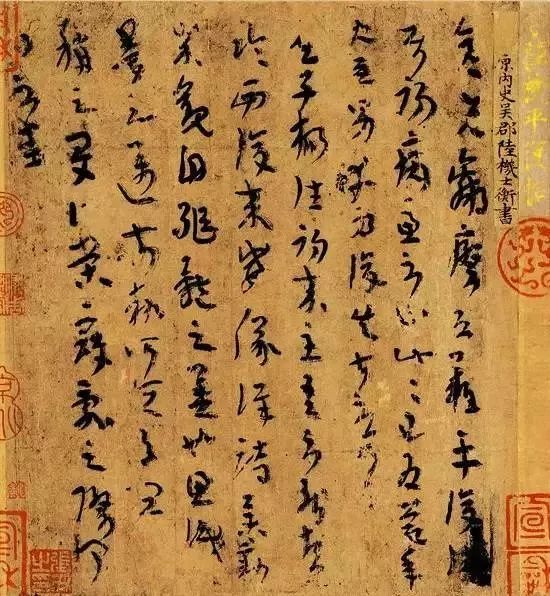 原內史吳郡陸機士衡書
彥先羸瘵恐難平復
往屬初病慮不止此此已為慶承
使唯男幸為復失前憂耳
吳子楊往初來主吾不能盡
臨西復來威儀詳跱舉動
成觀自軀體之美也思識
量之邁前執所恆有宜
稱之夏伯榮寇亂之際聞
問不悉